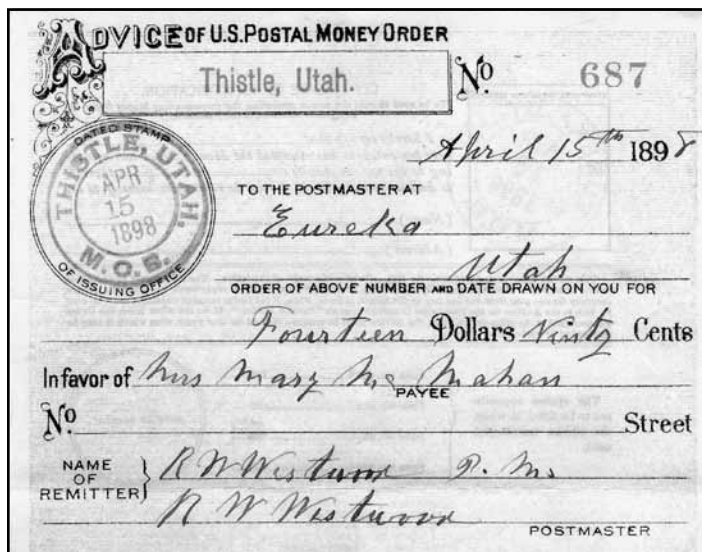 ADVICE OF U.S. POSTAL MONEY ORDER
Thistle, Utah.
No. 687
April 15th 1898
DATED STAMP
THISTLE, UTAH.
APR
15
1898
M.O.B.
OF ISSUING OFFICE
TO THE POSTMASTER AT
Eureka
Utah
ORDER OF ABOVE NUMBER AND DATE DRAWN ON YOU FOR
Fourteen Dollars Ninty Cents
In favor of Mrs Mary Mc Mahan
PAYEE
No. Street
NAME OF REMITTER } R W Westwood P. M.
R W Westwood
POSTMASTER